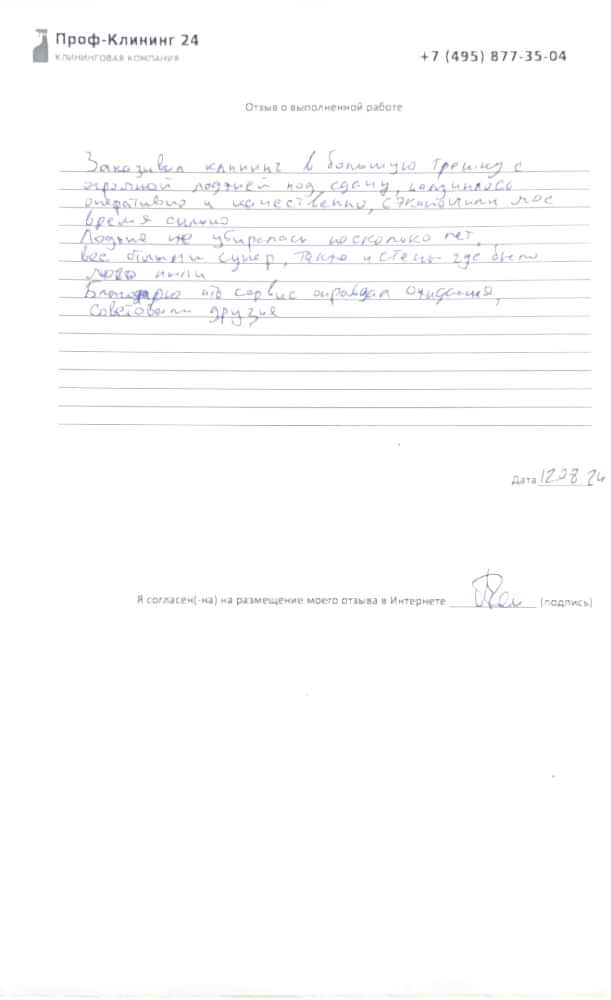 Проф-Клининг 24
КЛИНИНГОВАЯ КОМПАНИЯ
+7 (495) 877-35-04
Отзыв о выполненной работе
Заказывал клининг в большую трешку с
огромной лоджией под сдачу,
оперативно и качественно, сэкономили мое
время сильно
Лоджия не убиралась несколько лет,
супер, и стены где было
пыли
Благодарю что сервис оправдал ожидания,
друзья
Дата 12.08.24
Я согласен(-на) на размещение моего отзыва в Интернете (подпись)